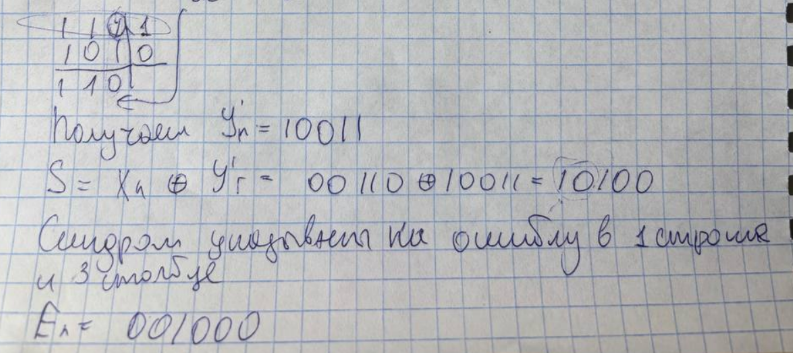 1 1 1 1
1 0 1 0
1 1 0
Получаем Y'п = 10011
S = Xч ⊕ Y'г = 00110 ⊕ 10011 = 10100
Синдром указывает на ошибку в 1 строке
и 3 столбце
Eл = 001000